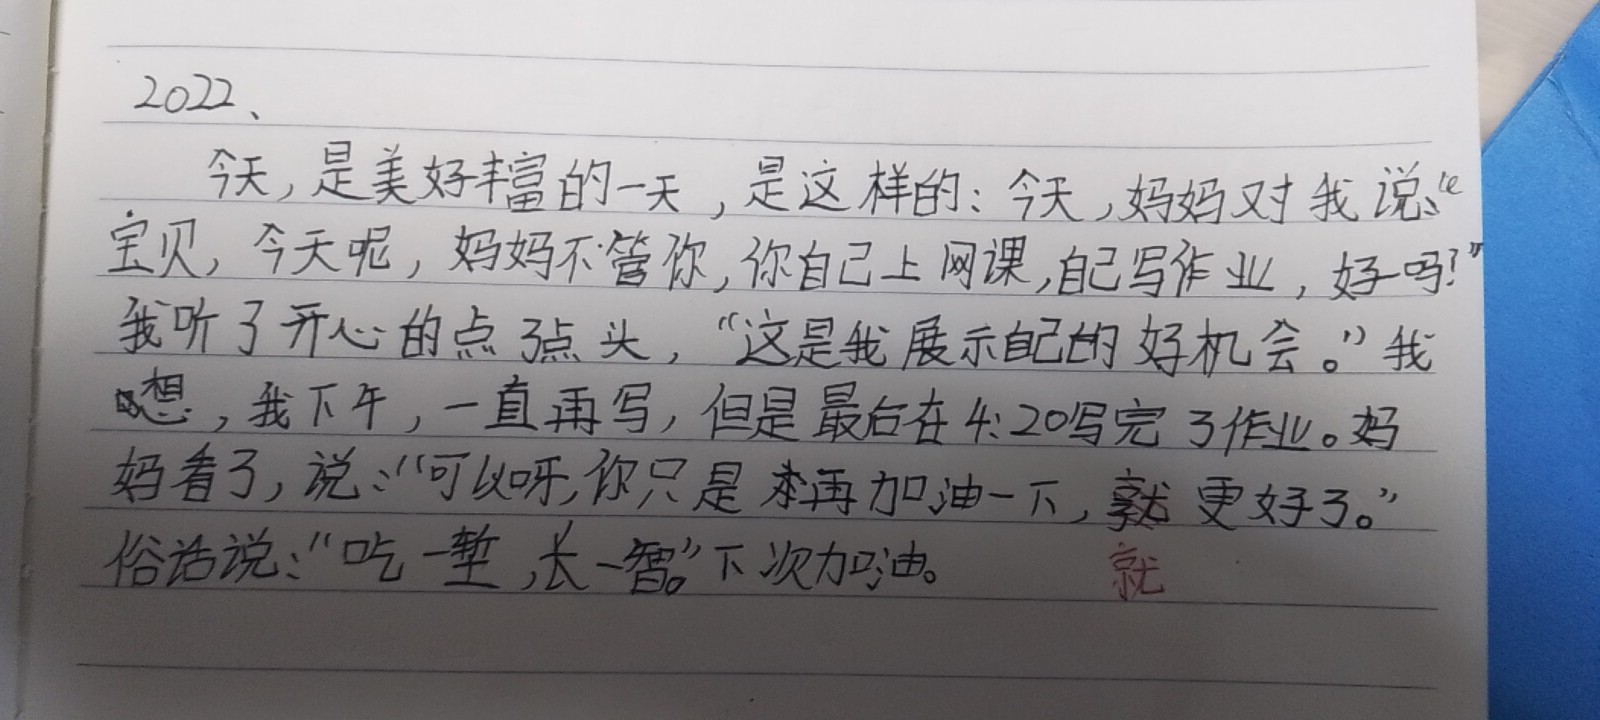 2022、
今天，是美好丰富的一天，是这样的：今天，妈妈对我说：“
宝贝，今天呢，妈妈不管你，你自己上网课，自己写作业，好吗？”
我听了开心的点了点头，“这是我展示自己的好机会。”我
想，我下午，一直再写，但是最后在4:20写完了作业。妈
妈看了，说：“可以呀，你只是再加油一下，就更好了。”
俗话说：“吃一堑，长一智。”下次加油。
就